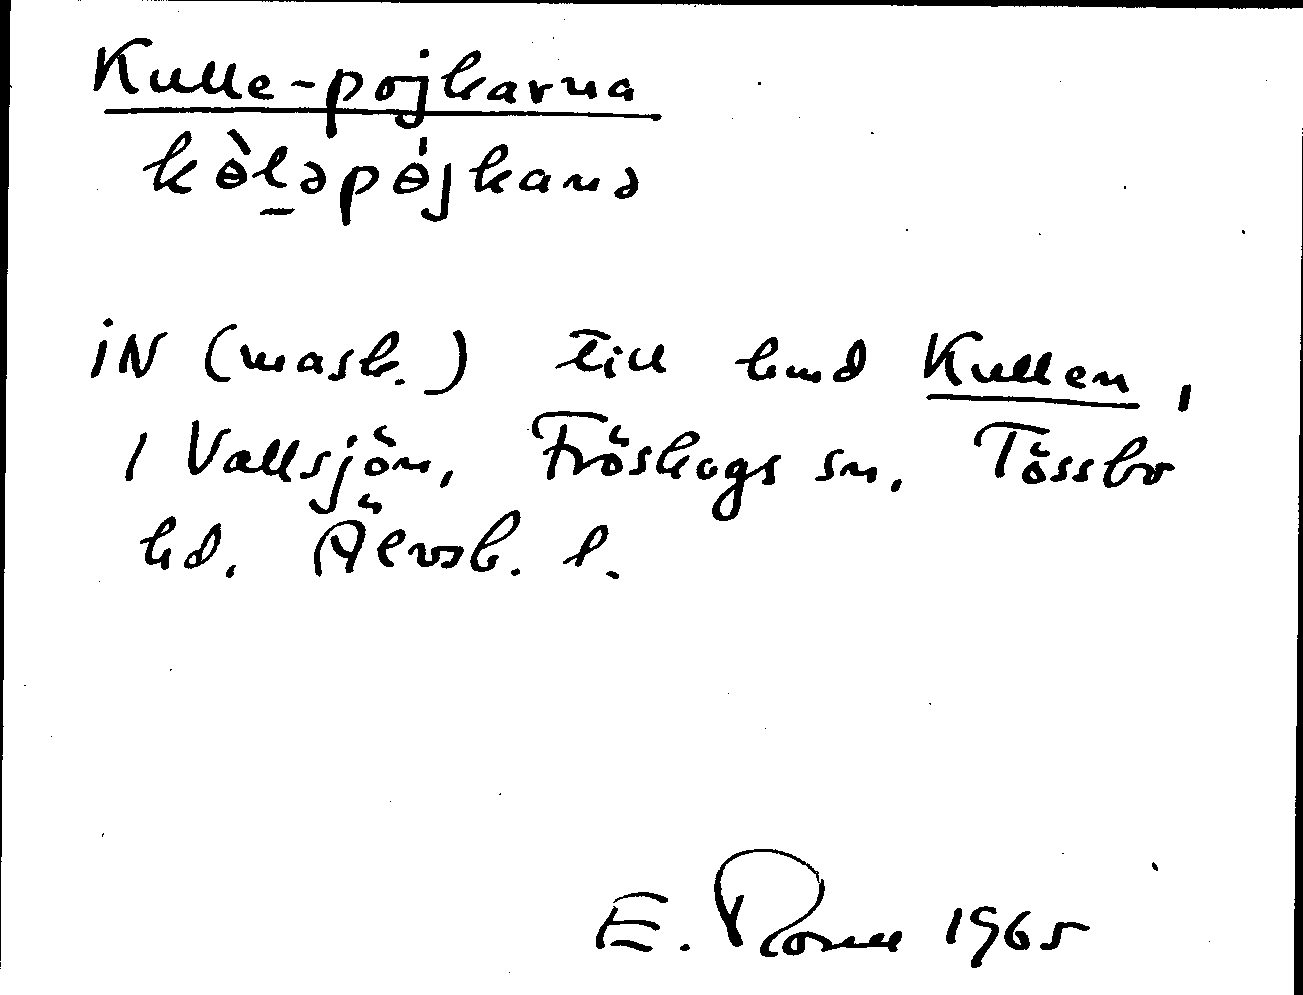 Kulle-pojkarna
kɵ̀l̠əpɵ́jkanə
iN (mask.) till hmd Kullen,
i Vallsjön, Fröskogs sn. Tössbo
hd. Älvsb. l.
E. 1965